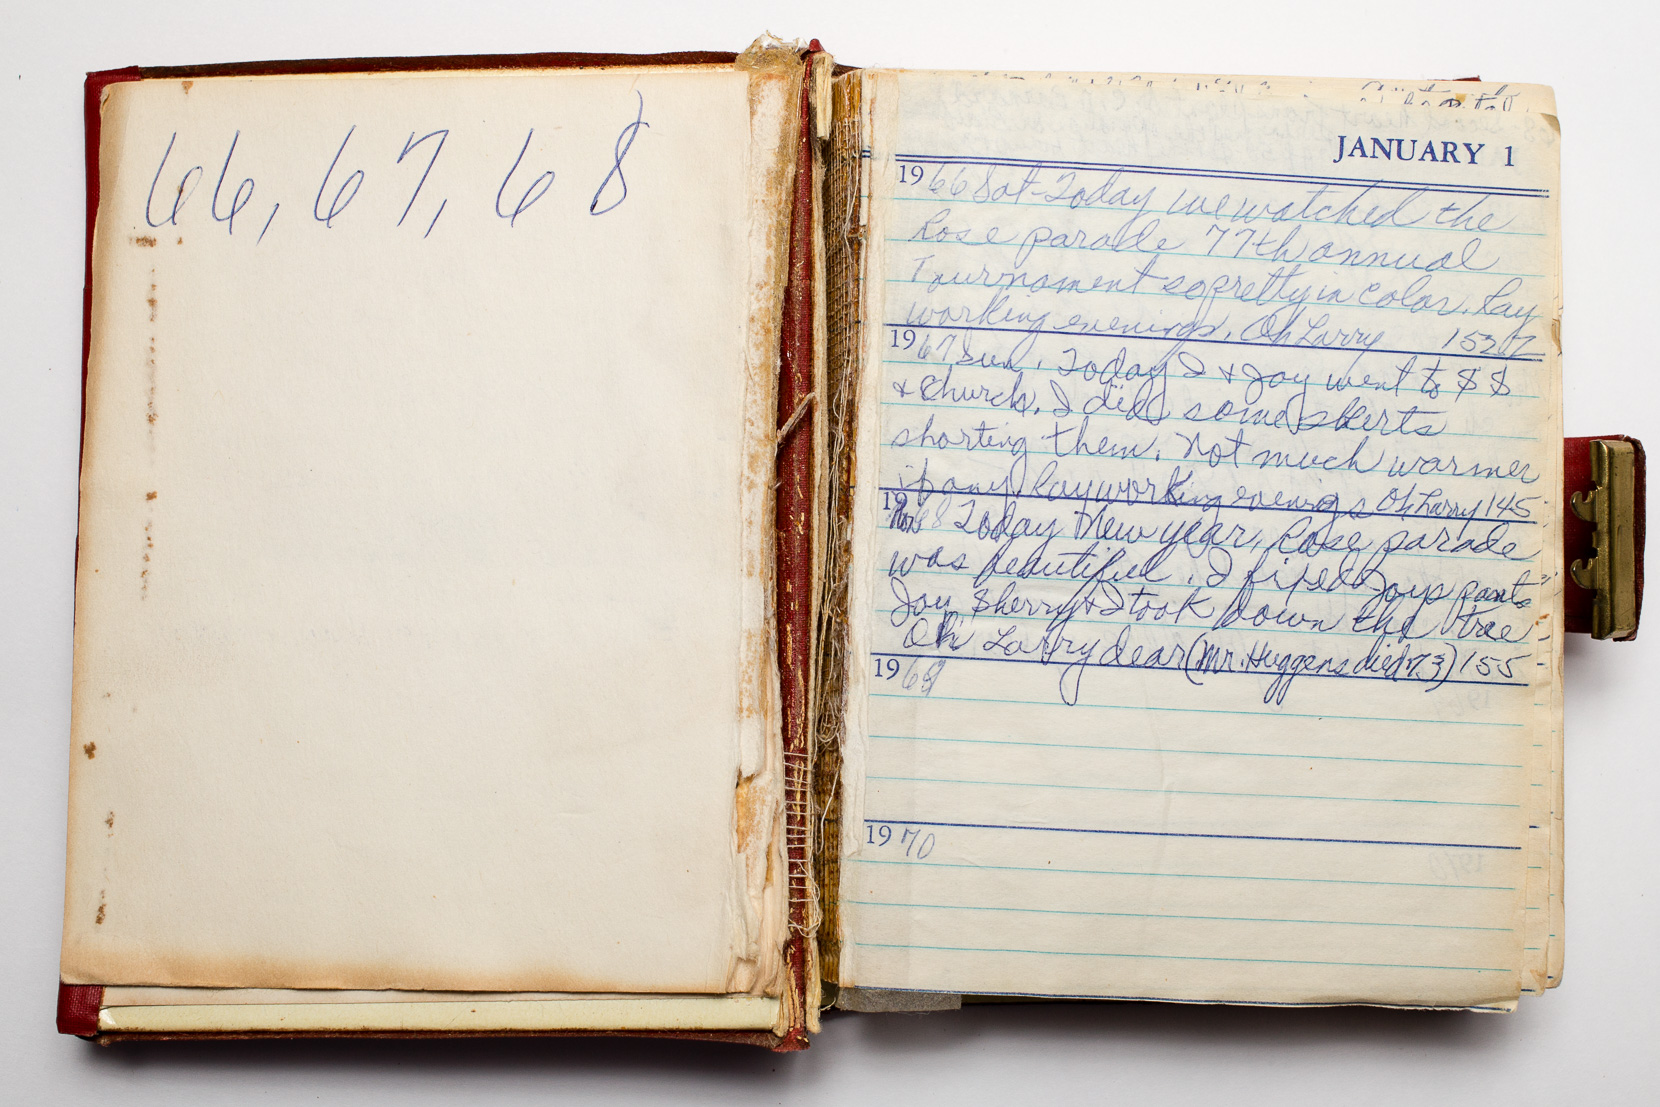 66, 67, 68
JANUARY 1
1966 Sat - Today we watched the
Rose parade 77th annual
Tournament so pretty in color. Ray
working evenings. Oh Larry 152
1967 Sun. Today I & Joy went to $ $
& Church. I did some skerts
shorting them. Not much warmer
if any Ray working evenings Oh Larry 145
1968 Today New year, Rose parade
was beautiful. I fixed Joys pants
Joy Sherry & I took down the tree
Oh Larry dear (Mr. Huggens died 73) 155
1969
1970